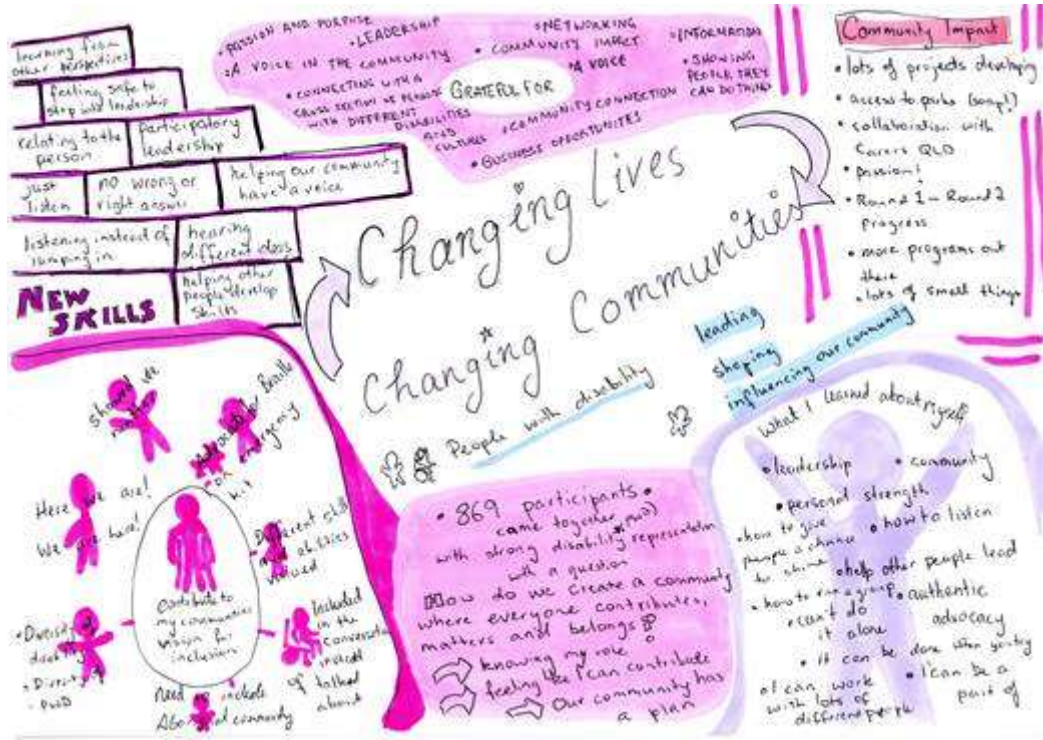 learning from
other perspectives
feeling safe to
step into leadership
relating to the
person
participatory
leadership
just
listen
no wrong or
right answer
helping our community
have a voice
listening instead of
jumping in
hearing
different ideas
helping other
people develop
skills
NEW
SKILLS
• PASSION AND PURPOSE
• LEADERSHIP
• A VOICE IN THE COMMUNITY
• CONNECTING WITH A
CROSS SECTION OF PEOPLE
WITH DIFFERENT
DISABILITIES
AND
CULTURES
GRATEFUL FOR
• NETWORKING
• COMMUNITY IMPACT
• A VOICE
• INFORMATION
• SHOWING
PEOPLE THEY
CAN DO THINGS
• COMMUNITY CONNECTION
• BUSINESS OPPORTUNITES
Community Impact
• lots of projects developing
• access to parks
• collaboration with
Carers QLD
• Passion!
• Round 1 - Round 2
Progress
• more programs out
there
• lots of small things
Changing Lives
Changing Communities
People with disability
leading
shaping
influencing our community
Here we are!
We are here!
for
emergency
kit
Different skills
and abilities
valued
Included
in the
conversation
instead
of talked
about
Need to include
Aboriginal community
• Diversity
disability
• Diversity
PWD
contribute to
my communities
vision for
inclusion
• 869 participants •
came together
with strong disability representation
with a question
How do we create a community
where everyone contributes,
matters and belongs?
knowing my role
feeling like I can contribute
Our community has
a plan
What I learned about myself
• leadership
• community
• personal strength
• how to give
people a chance
to shine
• how to listen
• help other people lead
• how to run a group
• can't do
it alone
• authentic
advocacy
• it can be done when
• I can work
with lots of
different people
• I can be a
part of